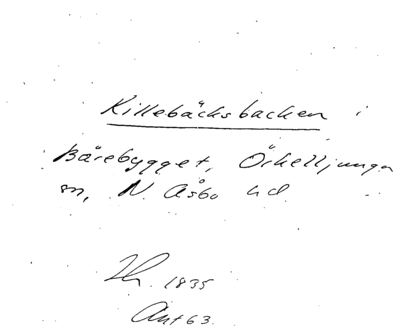 Killebäcksbacken i
Bårebygget, Örkelljunga
sn, N. Åsbo hd
Lh. 1835
Ant 63.